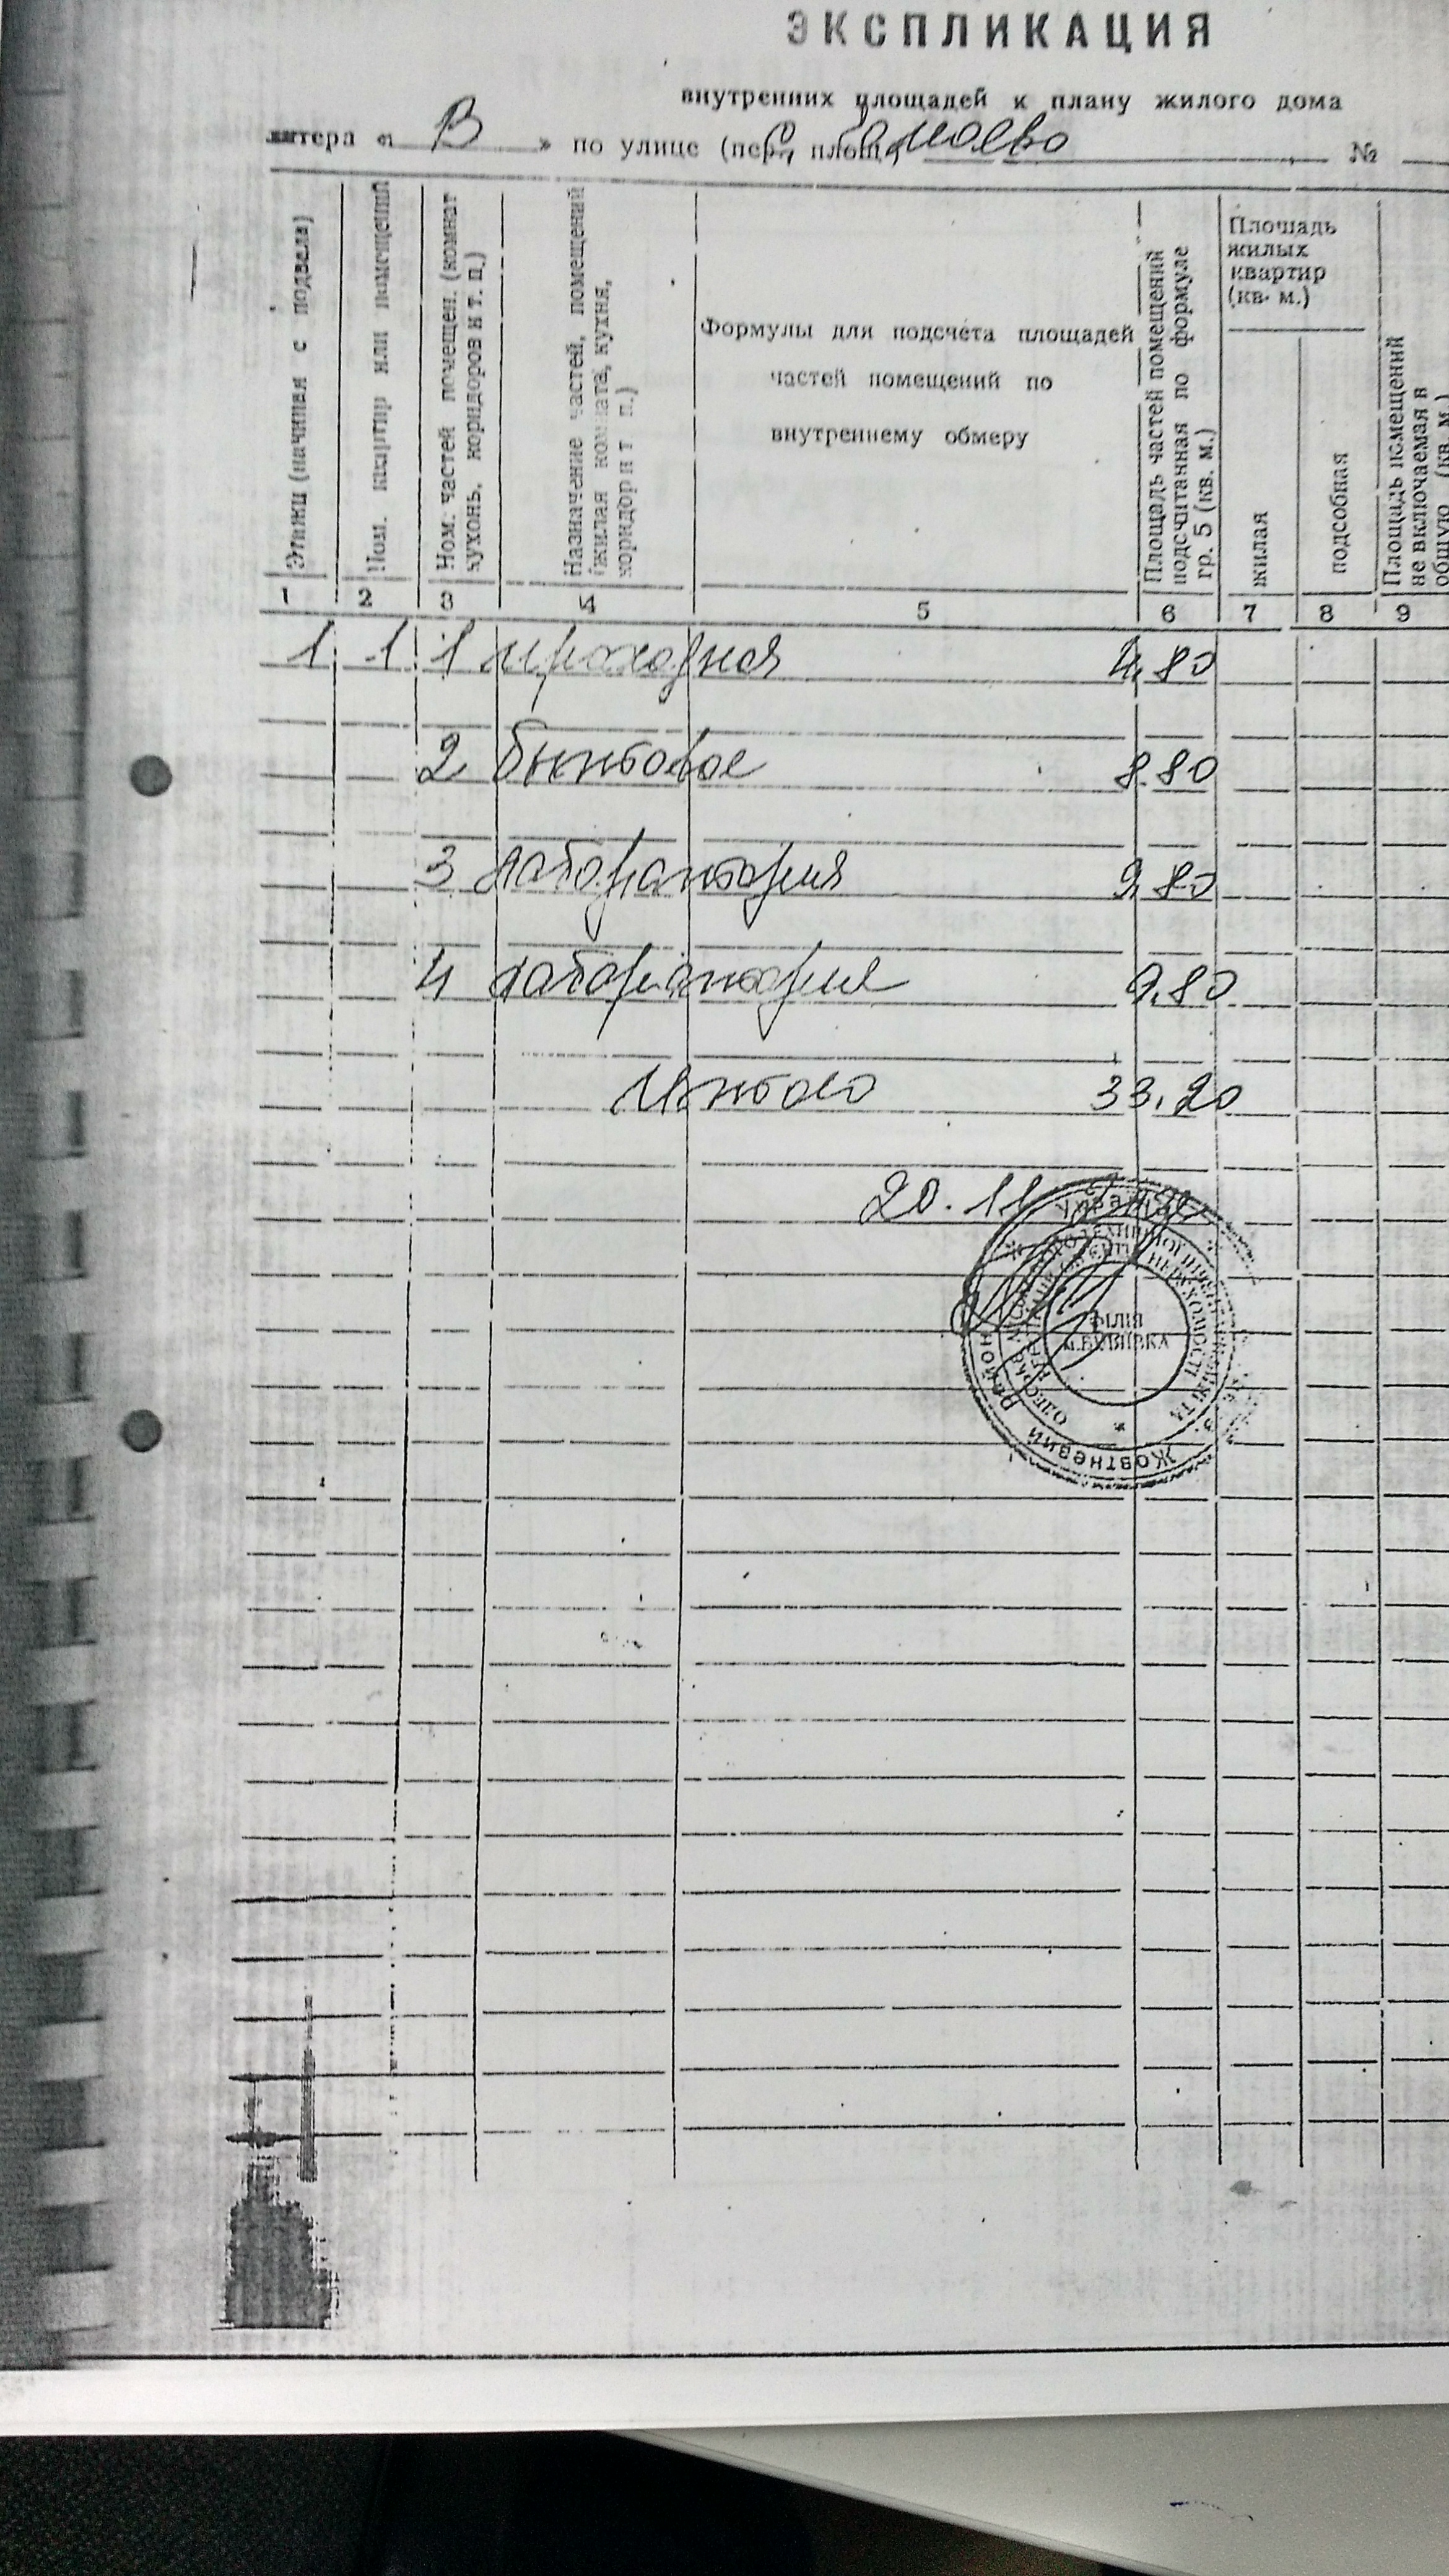 ЭКСПЛИКАЦИЯ
внутренних площадей к плану жилого дома
литера « В » по улице (пер., площ.) №
Этажи (начиная с подвала)
Ном. квартир или помещений
Ном. частей помещен. (комнат
кухонь, коридоров и т. п.)
Назначение частей, помещений
(жилая комната, кухня,
коридор и т п.)
Формулы для подсчета площадей
частей помещений по
внутреннему обмеру
Площадь частей помещений
подсчитанная по формуле
гр. 5 (кв. м.)
Площадь
жилых
квартир
(кв. м.)
жилая
подсобная
Площадь помещений
не включаемая в
общую (кв. м.)
1 2 3 4 5 6 7 8 9
1 1 1 проходная 4.80
2 бытовое 8.80
3 лаборатория 9.80
4 лаборатория 9.80
Итого 33.20
20.11
ФІЛІЯ
м.БІЛЯЇВКА
Жовтневий